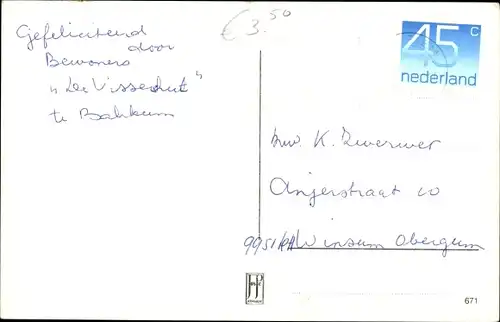 € 3.50
Gefeliciteerd
door
Bewoners
"De Visserhut"
te Bakkum
45 c
nederland
Mw. K. Zwerwer
Anjerstraat 10
9951 Winsum Obergum
671